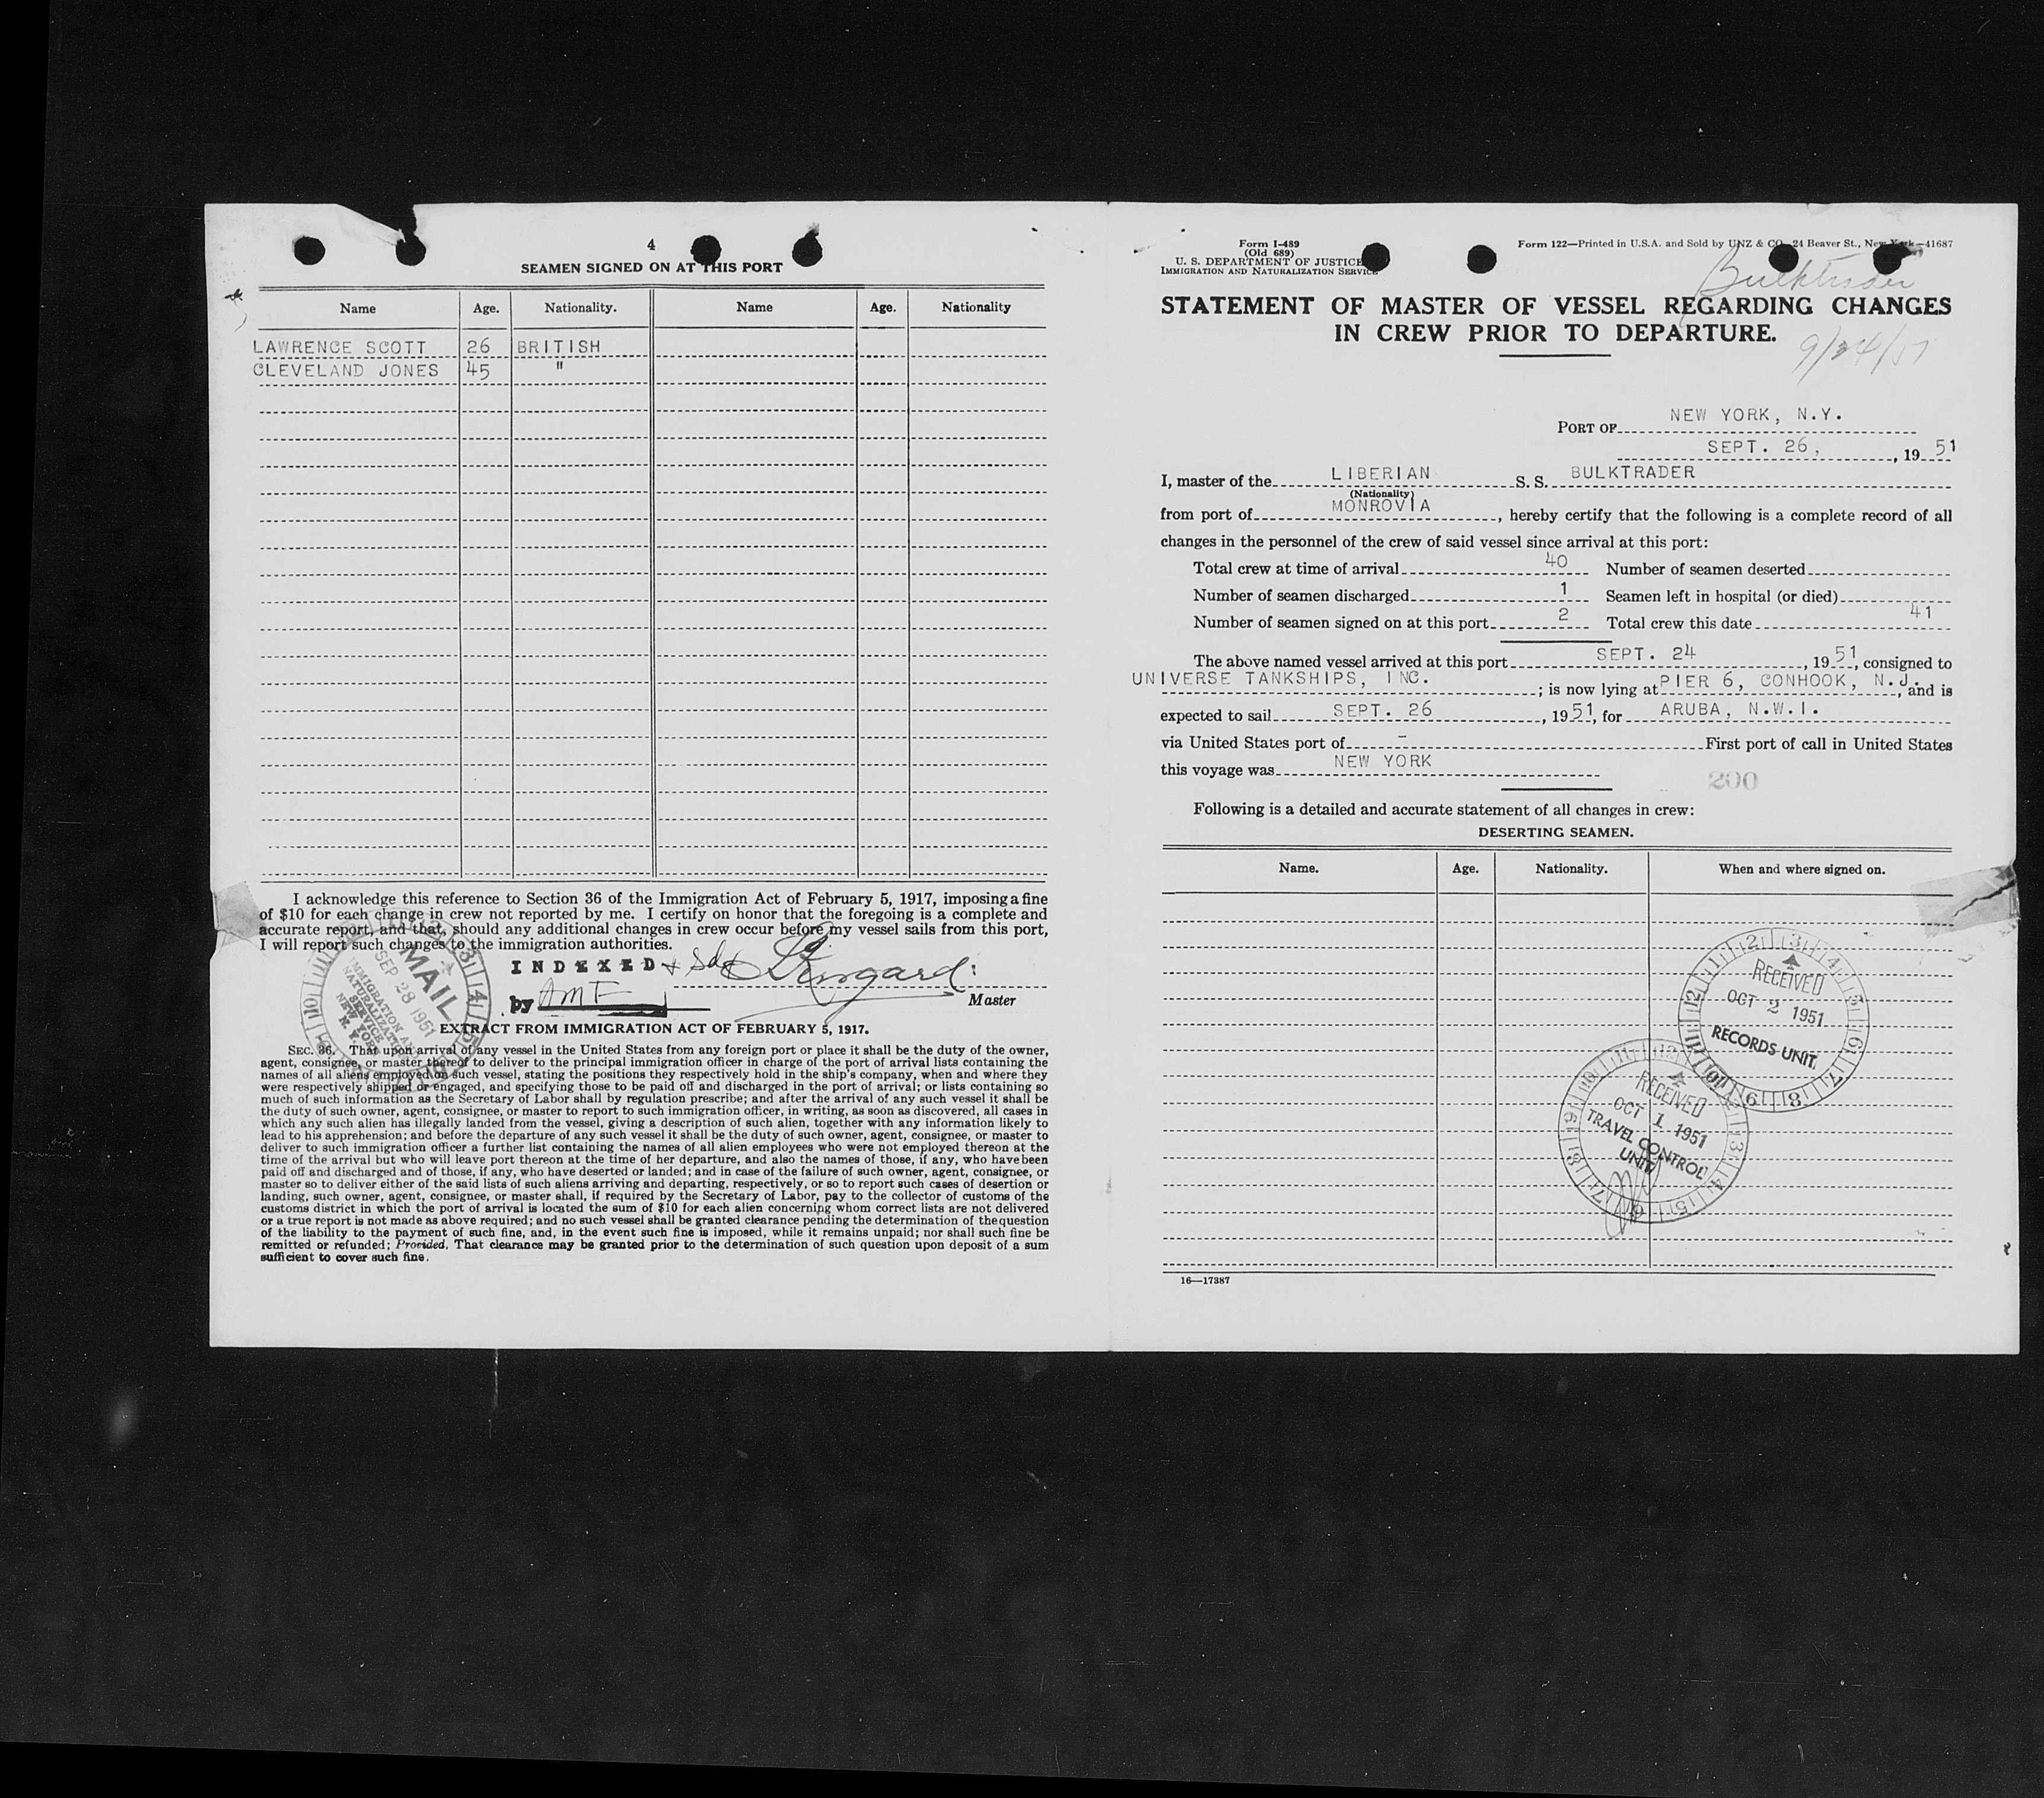 4
SEAMEN SIGNED ON AT THIS PORT
Name Age. Nationality. Name Age. Nationality
LAWRENCE SCOTT 26 BRITISH
CLEVELAND JONES 45 "
I acknowledge this reference to Section 36 of the Immigration Act of February 5, 1917, imposing a fine
of $10 for each change in crew not reported by me. I certify on honor that the foregoing is a complete and
accurate report, and that, should any additional changes in crew occur before my vessel sails from this port,
I will report such changes to the immigration authorities.
INDEXED
by AMF Master
MAIL
SEP 28 1951
IMMIGRATION AND
NATURALIZATION
SERVICE
NEW YORK
N. Y.
EXTRACT FROM IMMIGRATION ACT OF FEBRUARY 5, 1917.
SEC. 36. That upon arrival of any vessel in the United States from any foreign port or place it shall be the duty of the owner,
agent, consignee, or master thereof to deliver to the principal immigration officer in charge of the port of arrival lists containing the
names of all aliens employed on such vessel, stating the positions they respectively hold in the ship's company, when and where they
were respectively shipped or engaged, and specifying those to be paid off and discharged in the port of arrival; or lists containing so
much of such information as the Secretary of Labor shall by regulation prescribe; and after the arrival of any such vessel it shall be
the duty of such owner, agent, consignee, or master to report to such immigration officer, in writing, as soon as discovered, all cases in
which any such alien has illegally landed from the vessel, giving a description of such alien, together with any information likely to
lead to his apprehension; and before the departure of any such vessel it shall be the duty of such owner, agent, consignee, or master to
deliver to such immigration officer a further list containing the names of all alien employees who were not employed thereon at the
time of the arrival but who will leave port thereon at the time of her departure, and also the names of those, if any, who have been
paid off and discharged and of those, if any, who have deserted or landed; and in case of the failure of such owner, agent, consignee, or
master so to deliver either of the said lists of such aliens arriving and departing, respectively, or so to report such cases of desertion or
landing, such owner, agent, consignee, or master shall, if required by the Secretary of Labor, pay to the collector of customs of the
customs district in which the port of arrival is located the sum of $10 for each alien concerning whom correct lists are not delivered
or a true report is not made as above required; and no such vessel shall be granted clearance pending the determination of the question
of the liability to the payment of such fine, and, in the event such fine is imposed, while it remains unpaid; nor shall such fine be
remitted or refunded; Provided, That clearance may be granted prior to the determination of such question upon deposit of a sum
sufficient to cover such fine.
Form I-489
(Old 689)
U. S. DEPARTMENT OF JUSTICE
IMMIGRATION AND NATURALIZATION SERVICE
Form 122—Printed in U.S.A. and Sold by UNZ & CO. 24 Beaver St., New York—41687
Bulktrader
STATEMENT OF MASTER OF VESSEL REGARDING CHANGES
IN CREW PRIOR TO DEPARTURE.
9/24/51
PORT OF NEW YORK, N.Y.
SEPT. 26, , 19 51
I, master of the LIBERIAN S. S. BULKTRADER
(Nationality)
from port of MONROVIA, hereby certify that the following is a complete record of all
changes in the personnel of the crew of said vessel since arrival at this port:
Total crew at time of arrival 40 Number of seamen deserted
Number of seamen discharged 1 Seamen left in hospital (or died)
Number of seamen signed on at this port 2 Total crew this date 41
The above named vessel arrived at this port SEPT. 24, 19 51, consigned to
UNIVERSE TANKSHIPS, INC. ; is now lying at PIER 6, CONHOOK, N.J., and is
expected to sail SEPT. 26, 19 51, for ARUBA, N.W.I.
via United States port of - First port of call in United States
this voyage was NEW YORK
200
Following is a detailed and accurate statement of all changes in crew:
DESERTING SEAMEN.
Name. Age. Nationality. When and where signed on.
RECEIVED
OCT 2 1951
RECORDS UNIT.
RECEIVED
OCT 1 1951
TRAVEL CONTROL
UNIT
16—17387